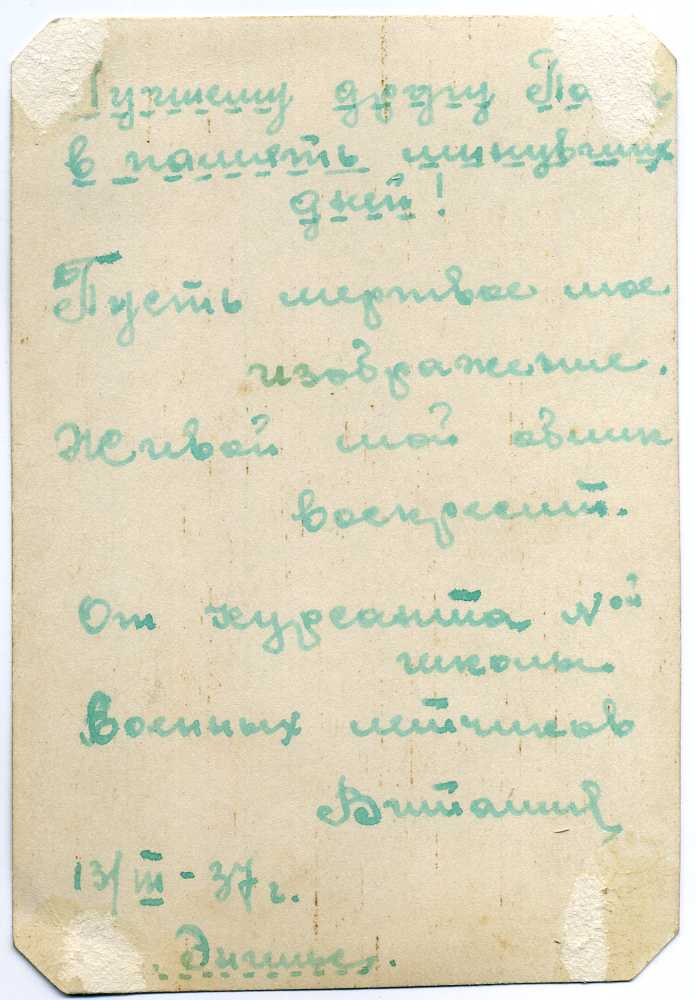 Лучшему другу
в память минувших
дней!
Пусть мертвое мое
изображение.
Живой мой облик
воскресит.
От курсанта Nой
школы
Военных летчиков
Виталия
13/III - 37 г.
Энгельс.